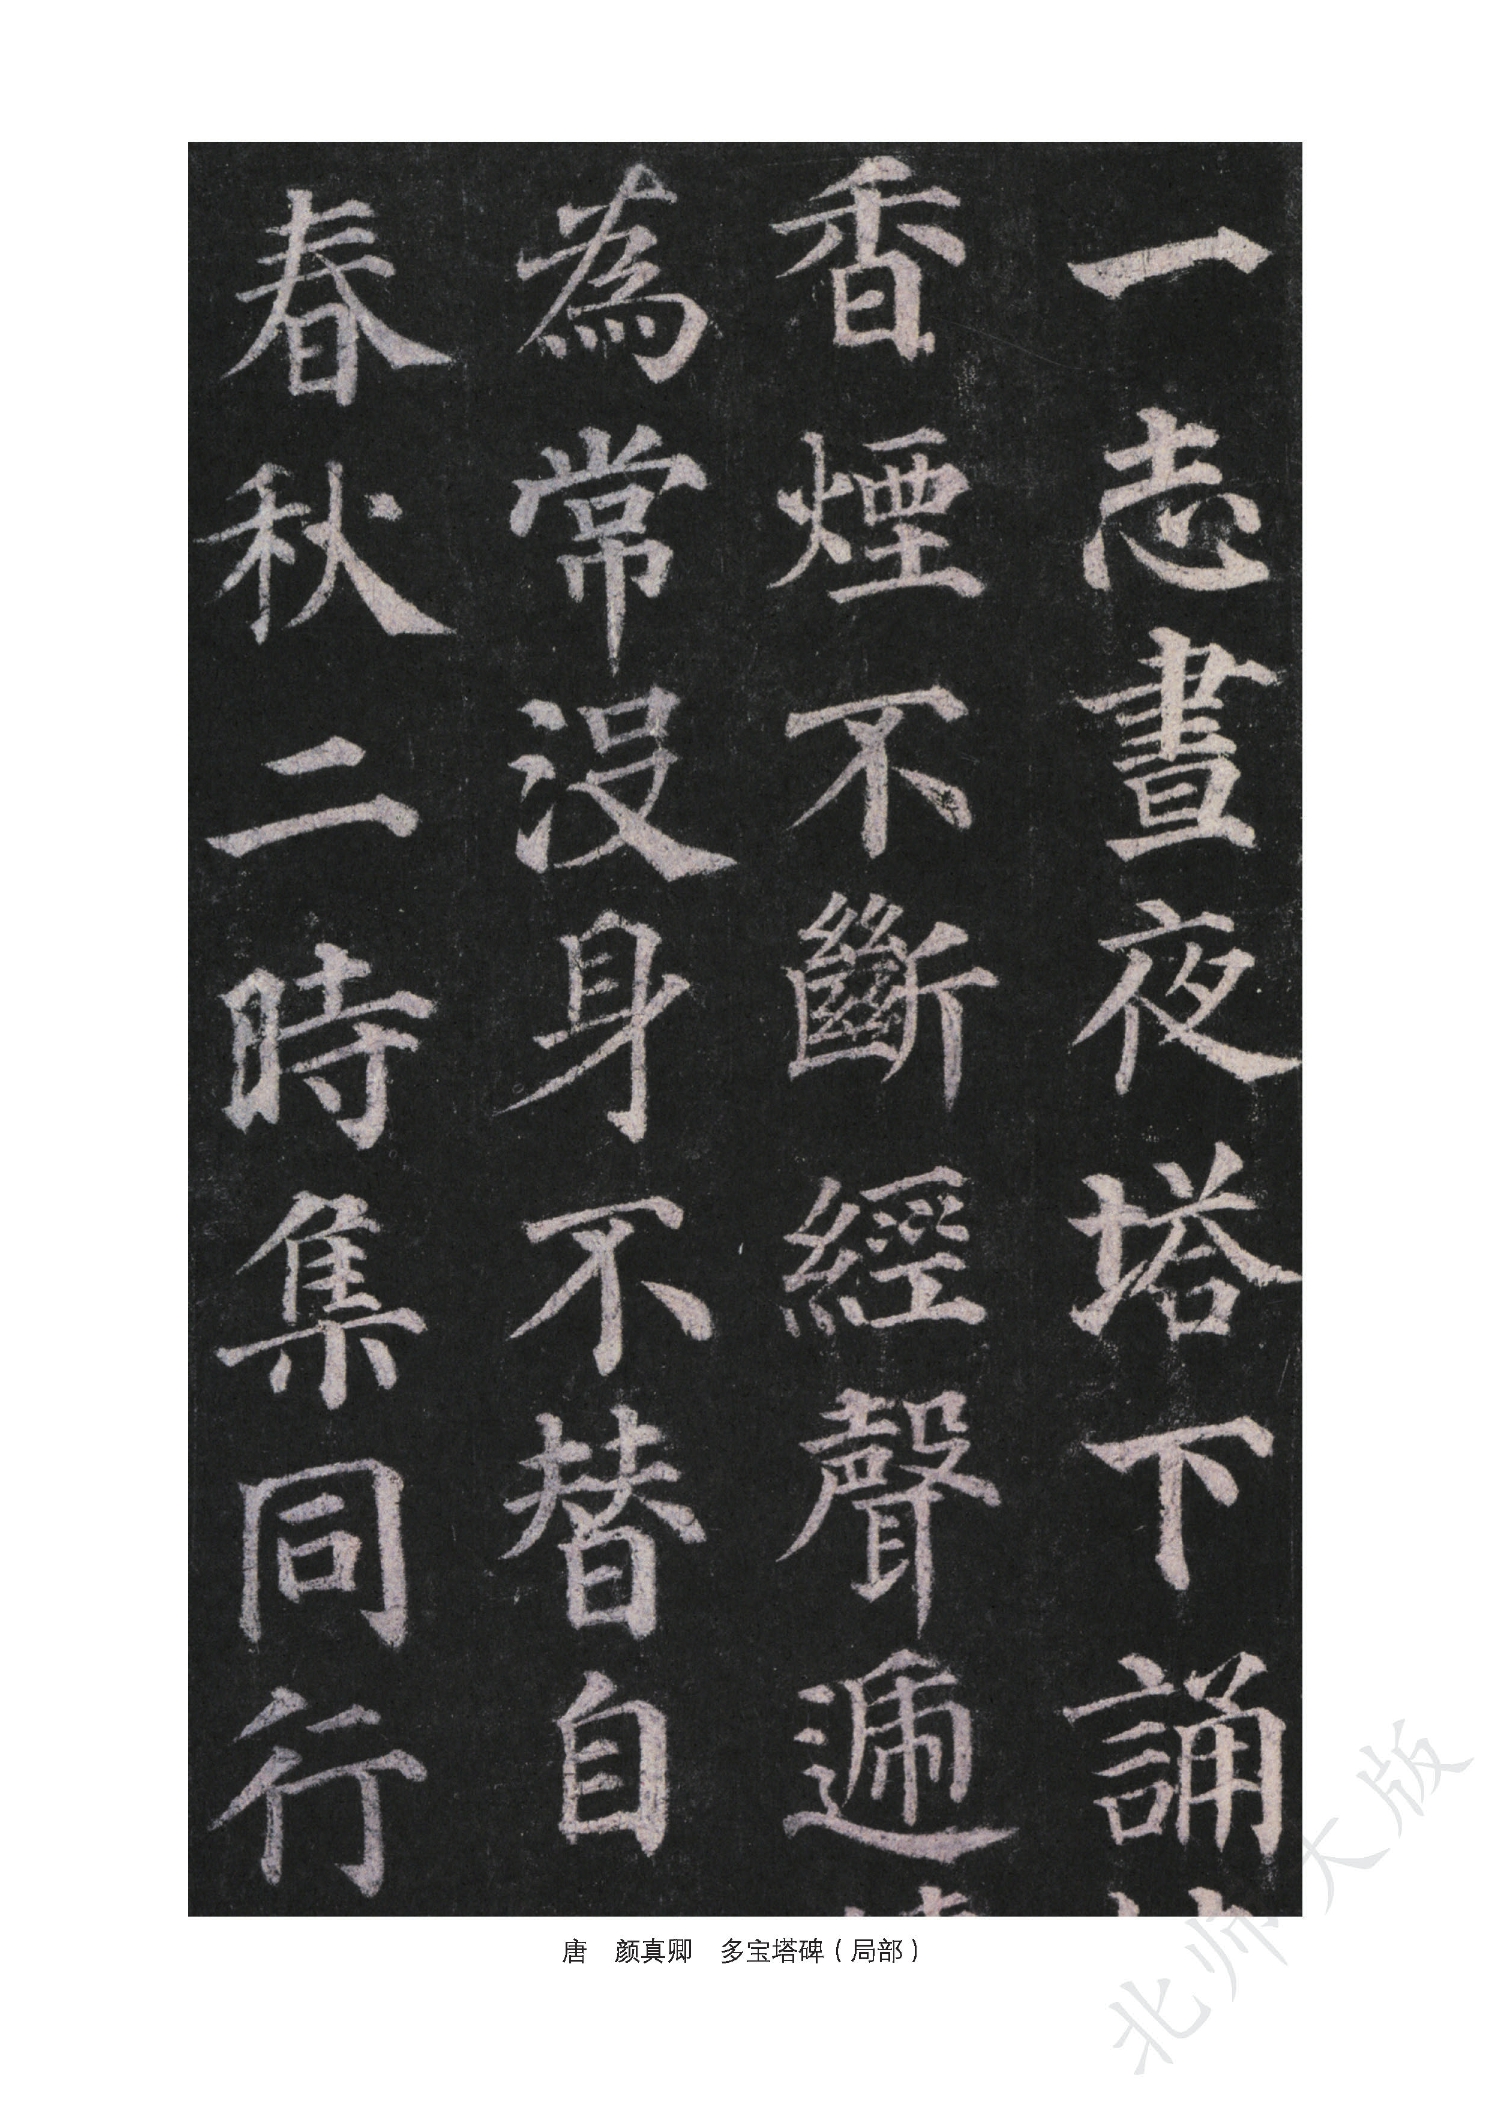 一志晝夜塔下誦
香煙不斷經聲遞
為常沒身不替自
春秋二時集同行
唐　颜真卿　多宝塔碑（局部）
北师大版